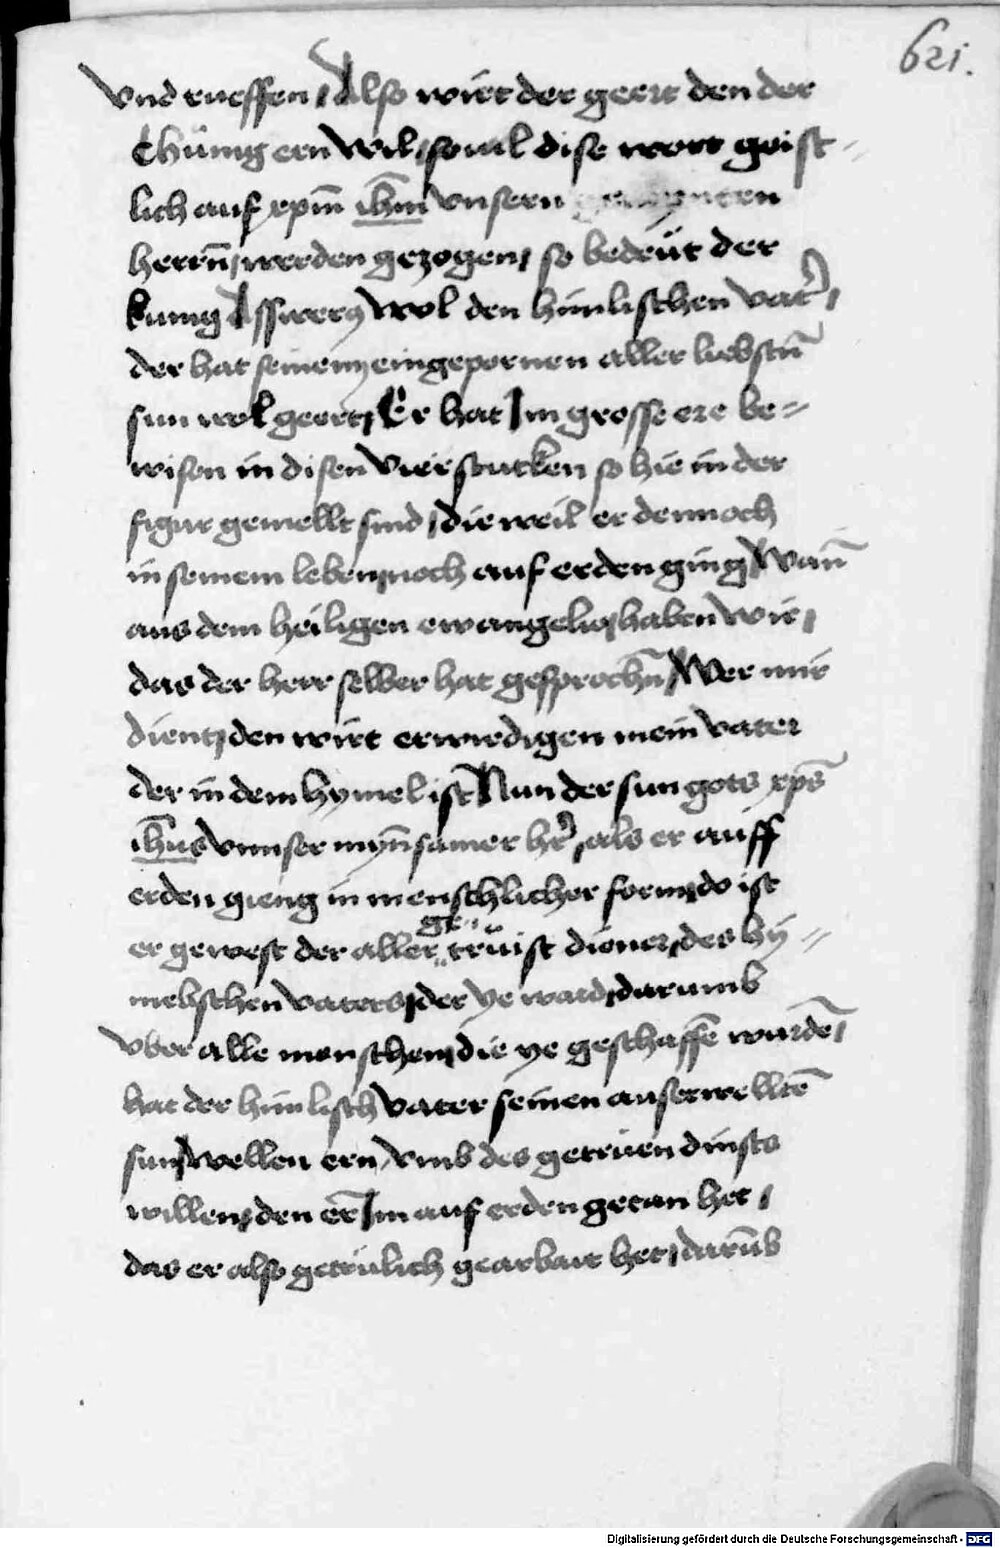 621.
vnd rueffen / Also wirt der geert den der
Chünig ern wil / sovil dise wort geist=
lich auf xpm̄ ih̄m vnsern
herrn̄ / werden gezogen / so bedeüt der
kunig Asswerꝰ wol den himlischen vatr̄ /
der hat seinem eingepornen aller liebstn̄
sun wol geert / Er hat Im grosse ere be=
wisen in disen vier stucken so hie in der
figur gemellt sind / die weil er dennoch
in seinem leben / noch auf erden ging / Wan̄
aus dem heiligen ewangelio / haben wir /
das der herr selber hat gesprochn̄ / Wer mir
dient / den wirt erwirdigen mein vater
der in dem hymel ist / Nun der sun gots xps̄
ih̄us vnnser myn̄samer hr̄ / als er auff
erden gieng in menschlicher form / do ist
er gewest der aller getrüist diener / des hy=
melischen vaters / der ye ward / darumb
vber alle menschen / die ye geschaffn̄ wurdn̄ /
hat der himlisch vater seinen auserwelltn̄
sun / wellen ern / vmb des getruen dinsts
willen / den er Im auf erden getan het /
das er also getrülich gearbait het / darūb
Digitalisierung gefördert durch die Deutsche Forschungsgemeinschaft - DFG